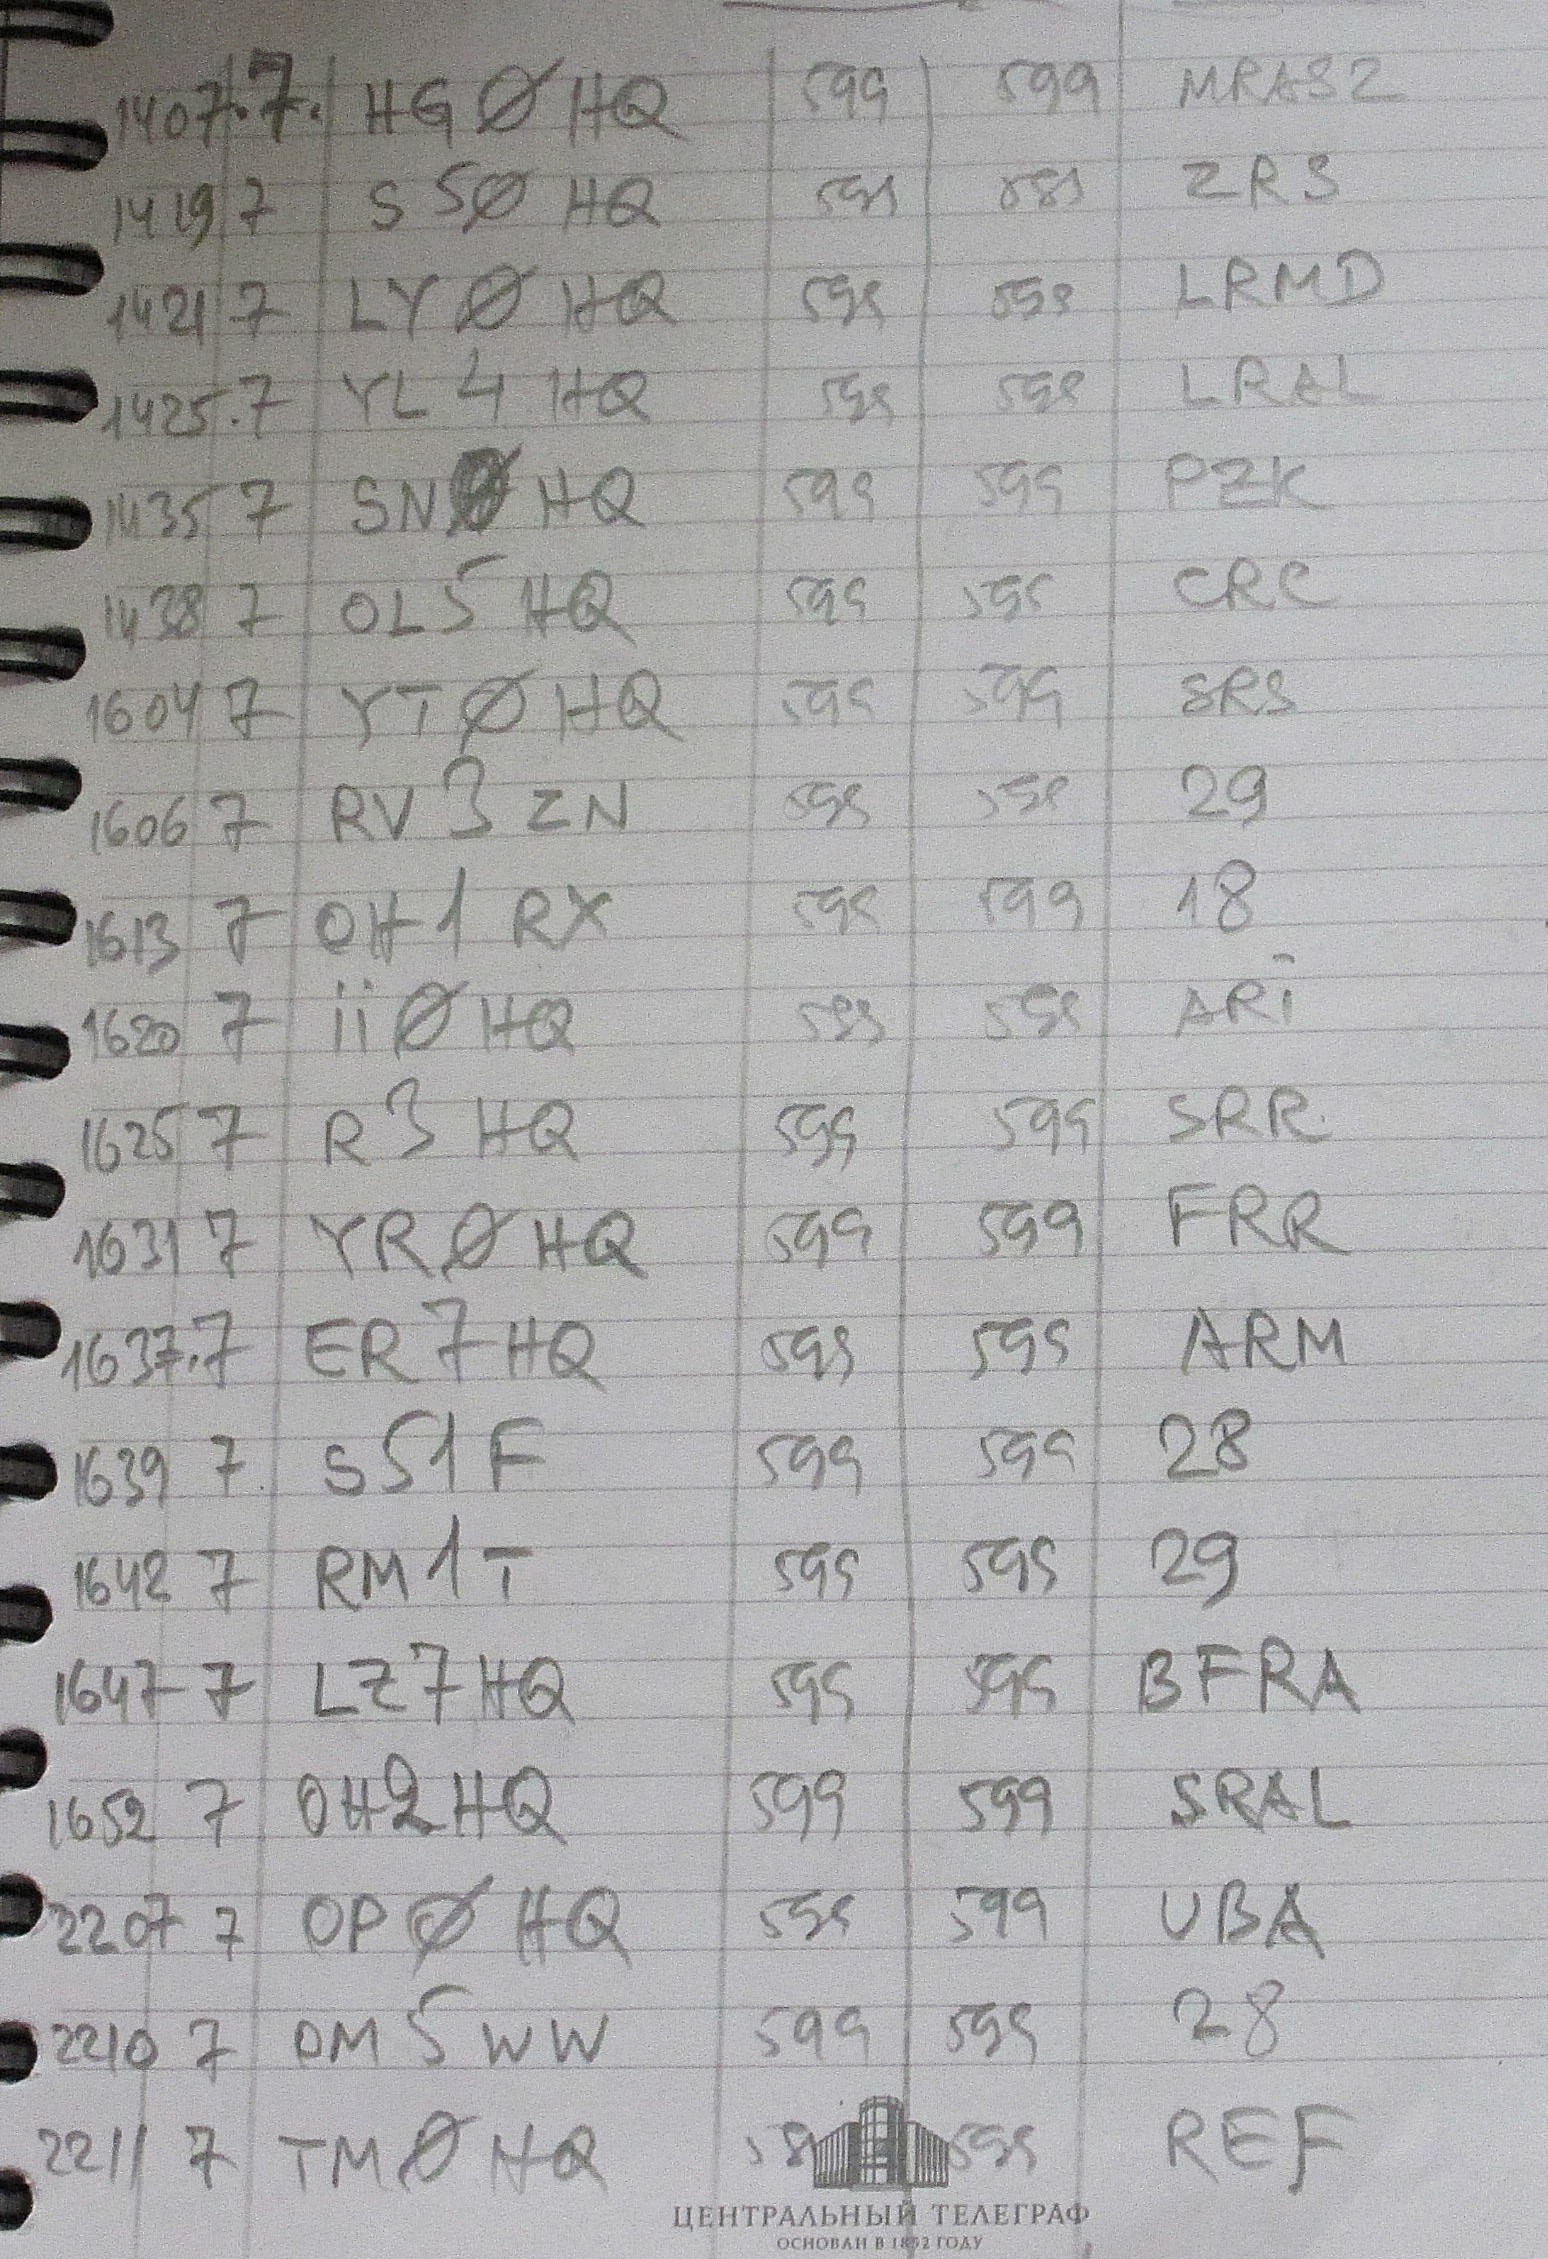 1407.7. HGØHQ 599 599 MRASZ
1419 7 S5Ø HQ 599 599 ZRS
1421 7 LYØ HQ 599 599 LRMD
1425.7 YL4HQ 599 599 LRAL
1435 7 SNØHQ 599 599 PZK
1438 7 OL5HQ 599 599 CRC
1604 7 YTØHQ 599 599 SRS
1606 7 RV3ZN 599 599 29
1613 7 OH1RX 599 599 18
1620 7 iiØHQ 599 599 ARi
1625 7 R3HQ 599 599 SRR
1631 7 YRØHQ 599 599 FRR
1637.7 ER7HQ 599 599 ARM
1639 7 S51F 599 599 28
1642 7 RM1T 599 599 29
1647 7 LZ7HQ 599 599 BFRA
1652 7 OH2HQ 599 599 SRAL
2207 7 OPØHQ 599 599 UBA
2210 7 DM5WW 599 599 28
2211 7 TMØHQ 599 REF
ЦЕНТРАЛЬНЫЙ ТЕЛЕГРАФ
ОСНОВАН В 1852 ГОДУ